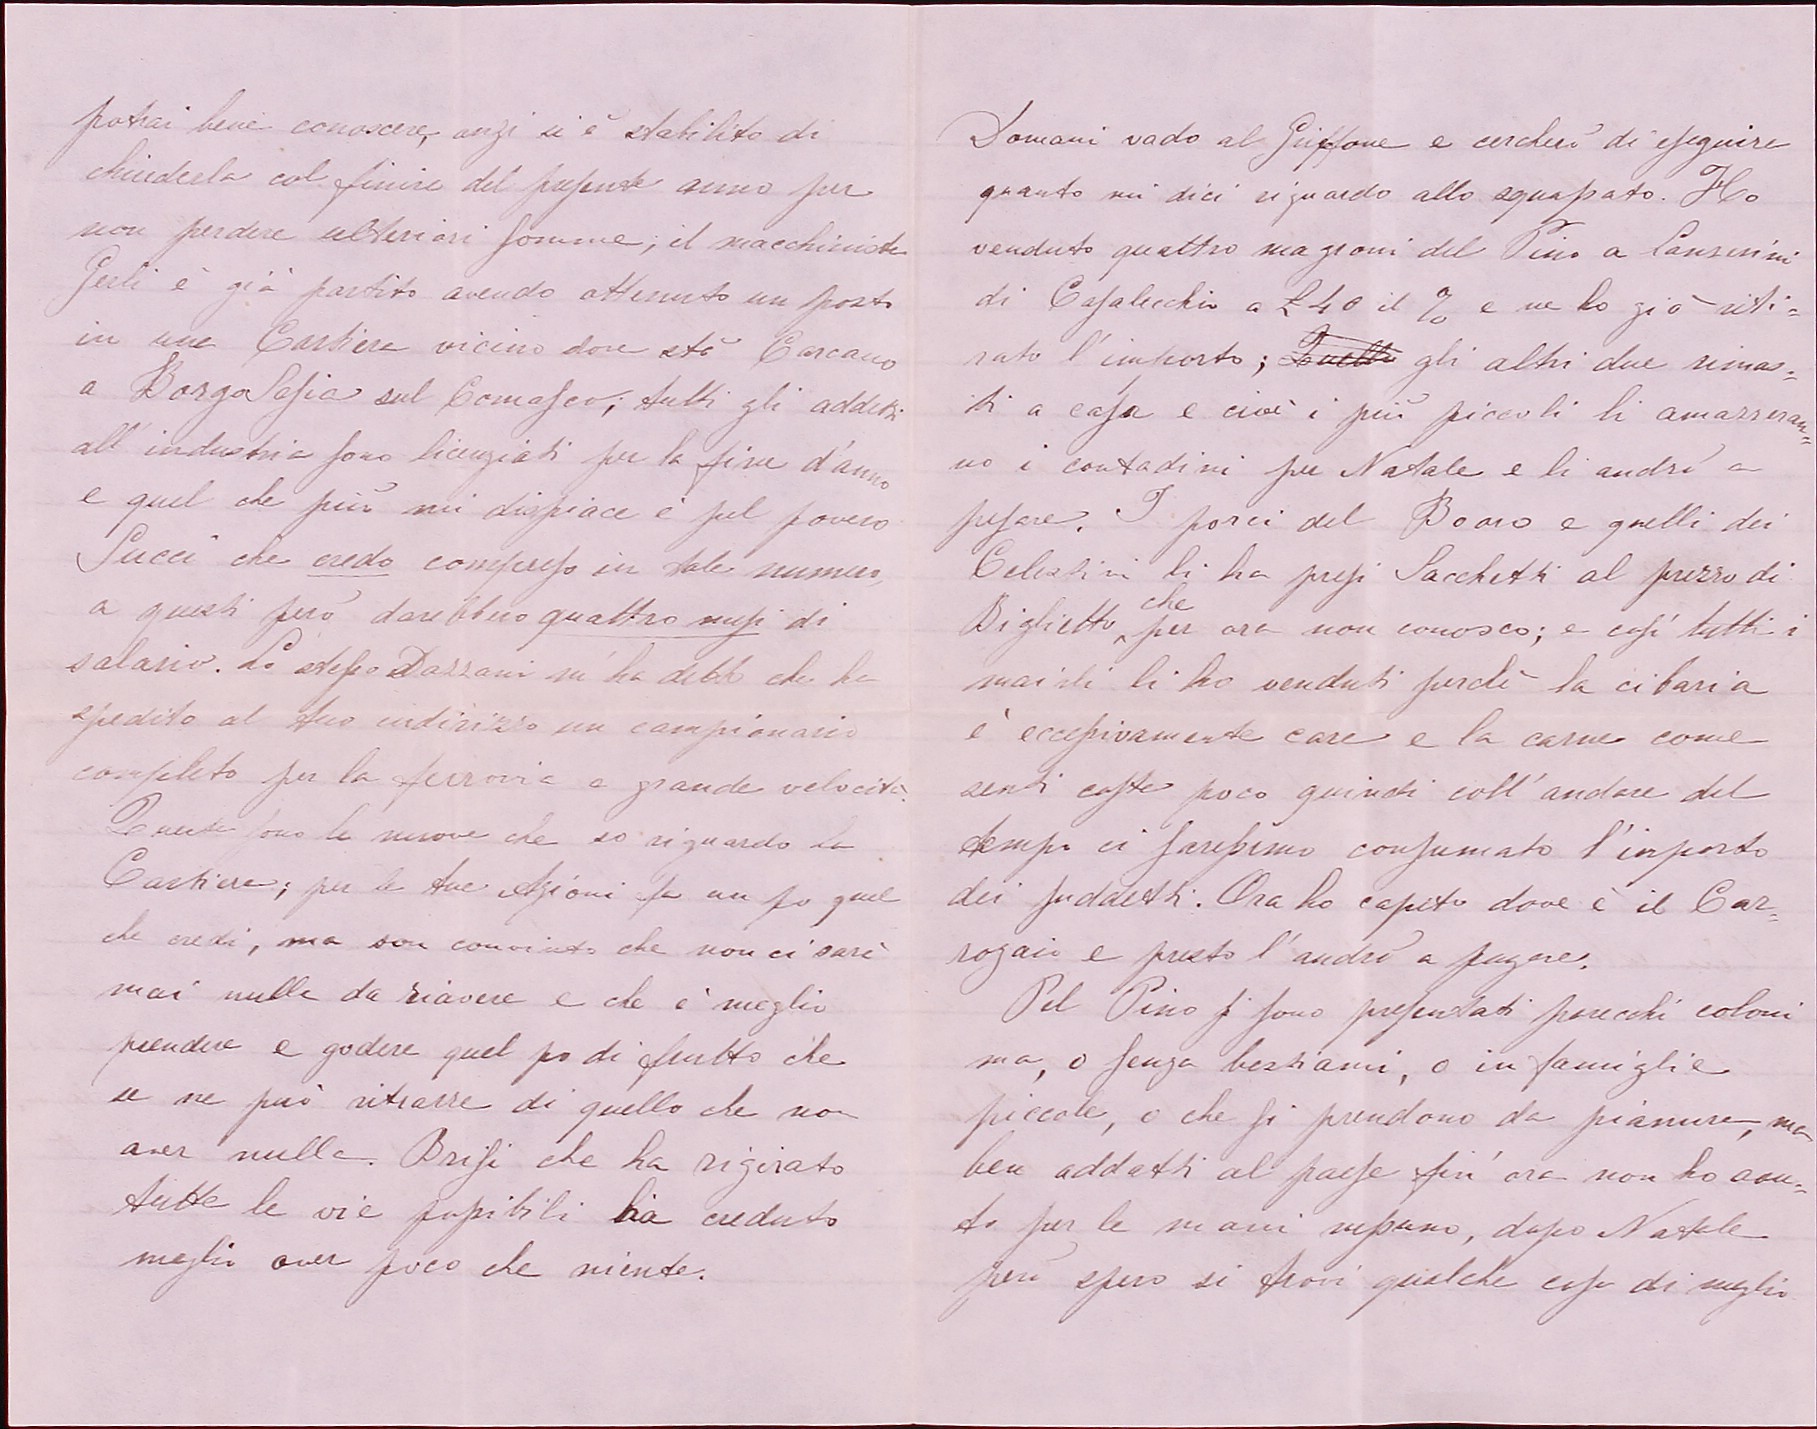 potrai bene conoscere, anzi si è stabilito di
chiuderla col finire del presente anno per
non perdere ulteriori somme; il macchinista
Gerli è già partito avendo ottenuto un posto
in una Cartiera vicino dove stà Carcano
a BorgoSesia sul Comasco; tutti gli addetti
all'industria sono licenziati per la fine d'anno
e quel che più mi dispiace è pel povero
Succi che credo compreso in tale numero,
a questi però darebbero quattro mesi di
salario. Lo stesso Dazzani m'ha detto che ha
spedito al tuo indirizzo un campionario
completo per la ferrovia a grande velocità.
Queste sono le nuove che so riguardo la
Cartiera; per le tue Azioni fa un po quel
che credi, ma son convinto che non ci sarà
mai nulla da riavere e che è meglio
prendere e godere quel po di frutto che
se ne può ritrarre di quello che non
aver nulla. Brisi che ha rigirato
tutte le vie possibili ha creduto
meglio aver poco che niente.
Domani vado al Griffone e cercherò di eseguire
quanto mi dici riguardo allo squassato. Ho
venduto quattro magroni del Pino a Canserini
di Casalecchio a £40 il % e ne ho già riti=
rato l'importo; Quelli gli altri due rimas=
ti a casa e cioè i più piccoli li amazzeran=
no i contadini per Natale e li andrò a
pesare. I porci del Boaro e quelli dei
Celestini li ha presi Sacchetti al prezzo di
Biglietto, che per ora non conosco; e così tutti i
maiali li ho venduti perchè la cibaria
è eccessivamente cara e la carne come
senti costa poco quindi coll'andare del
tempo ci saressimo consumato l'importo
dei suddetti. Ora ho capito dove è il Car=
rozaio e presto l'andrò a pagare.
Pel Pino si sono presentati parecchi coloni
ma, o senza bestiami, o in famiglie
piccole, o che si prendono da pianura, ma
ben addatti al paese fin'ora non ho avu=
to per le mani nessuno, dopo Natale
però spero si trovi qualche cosa di meglio